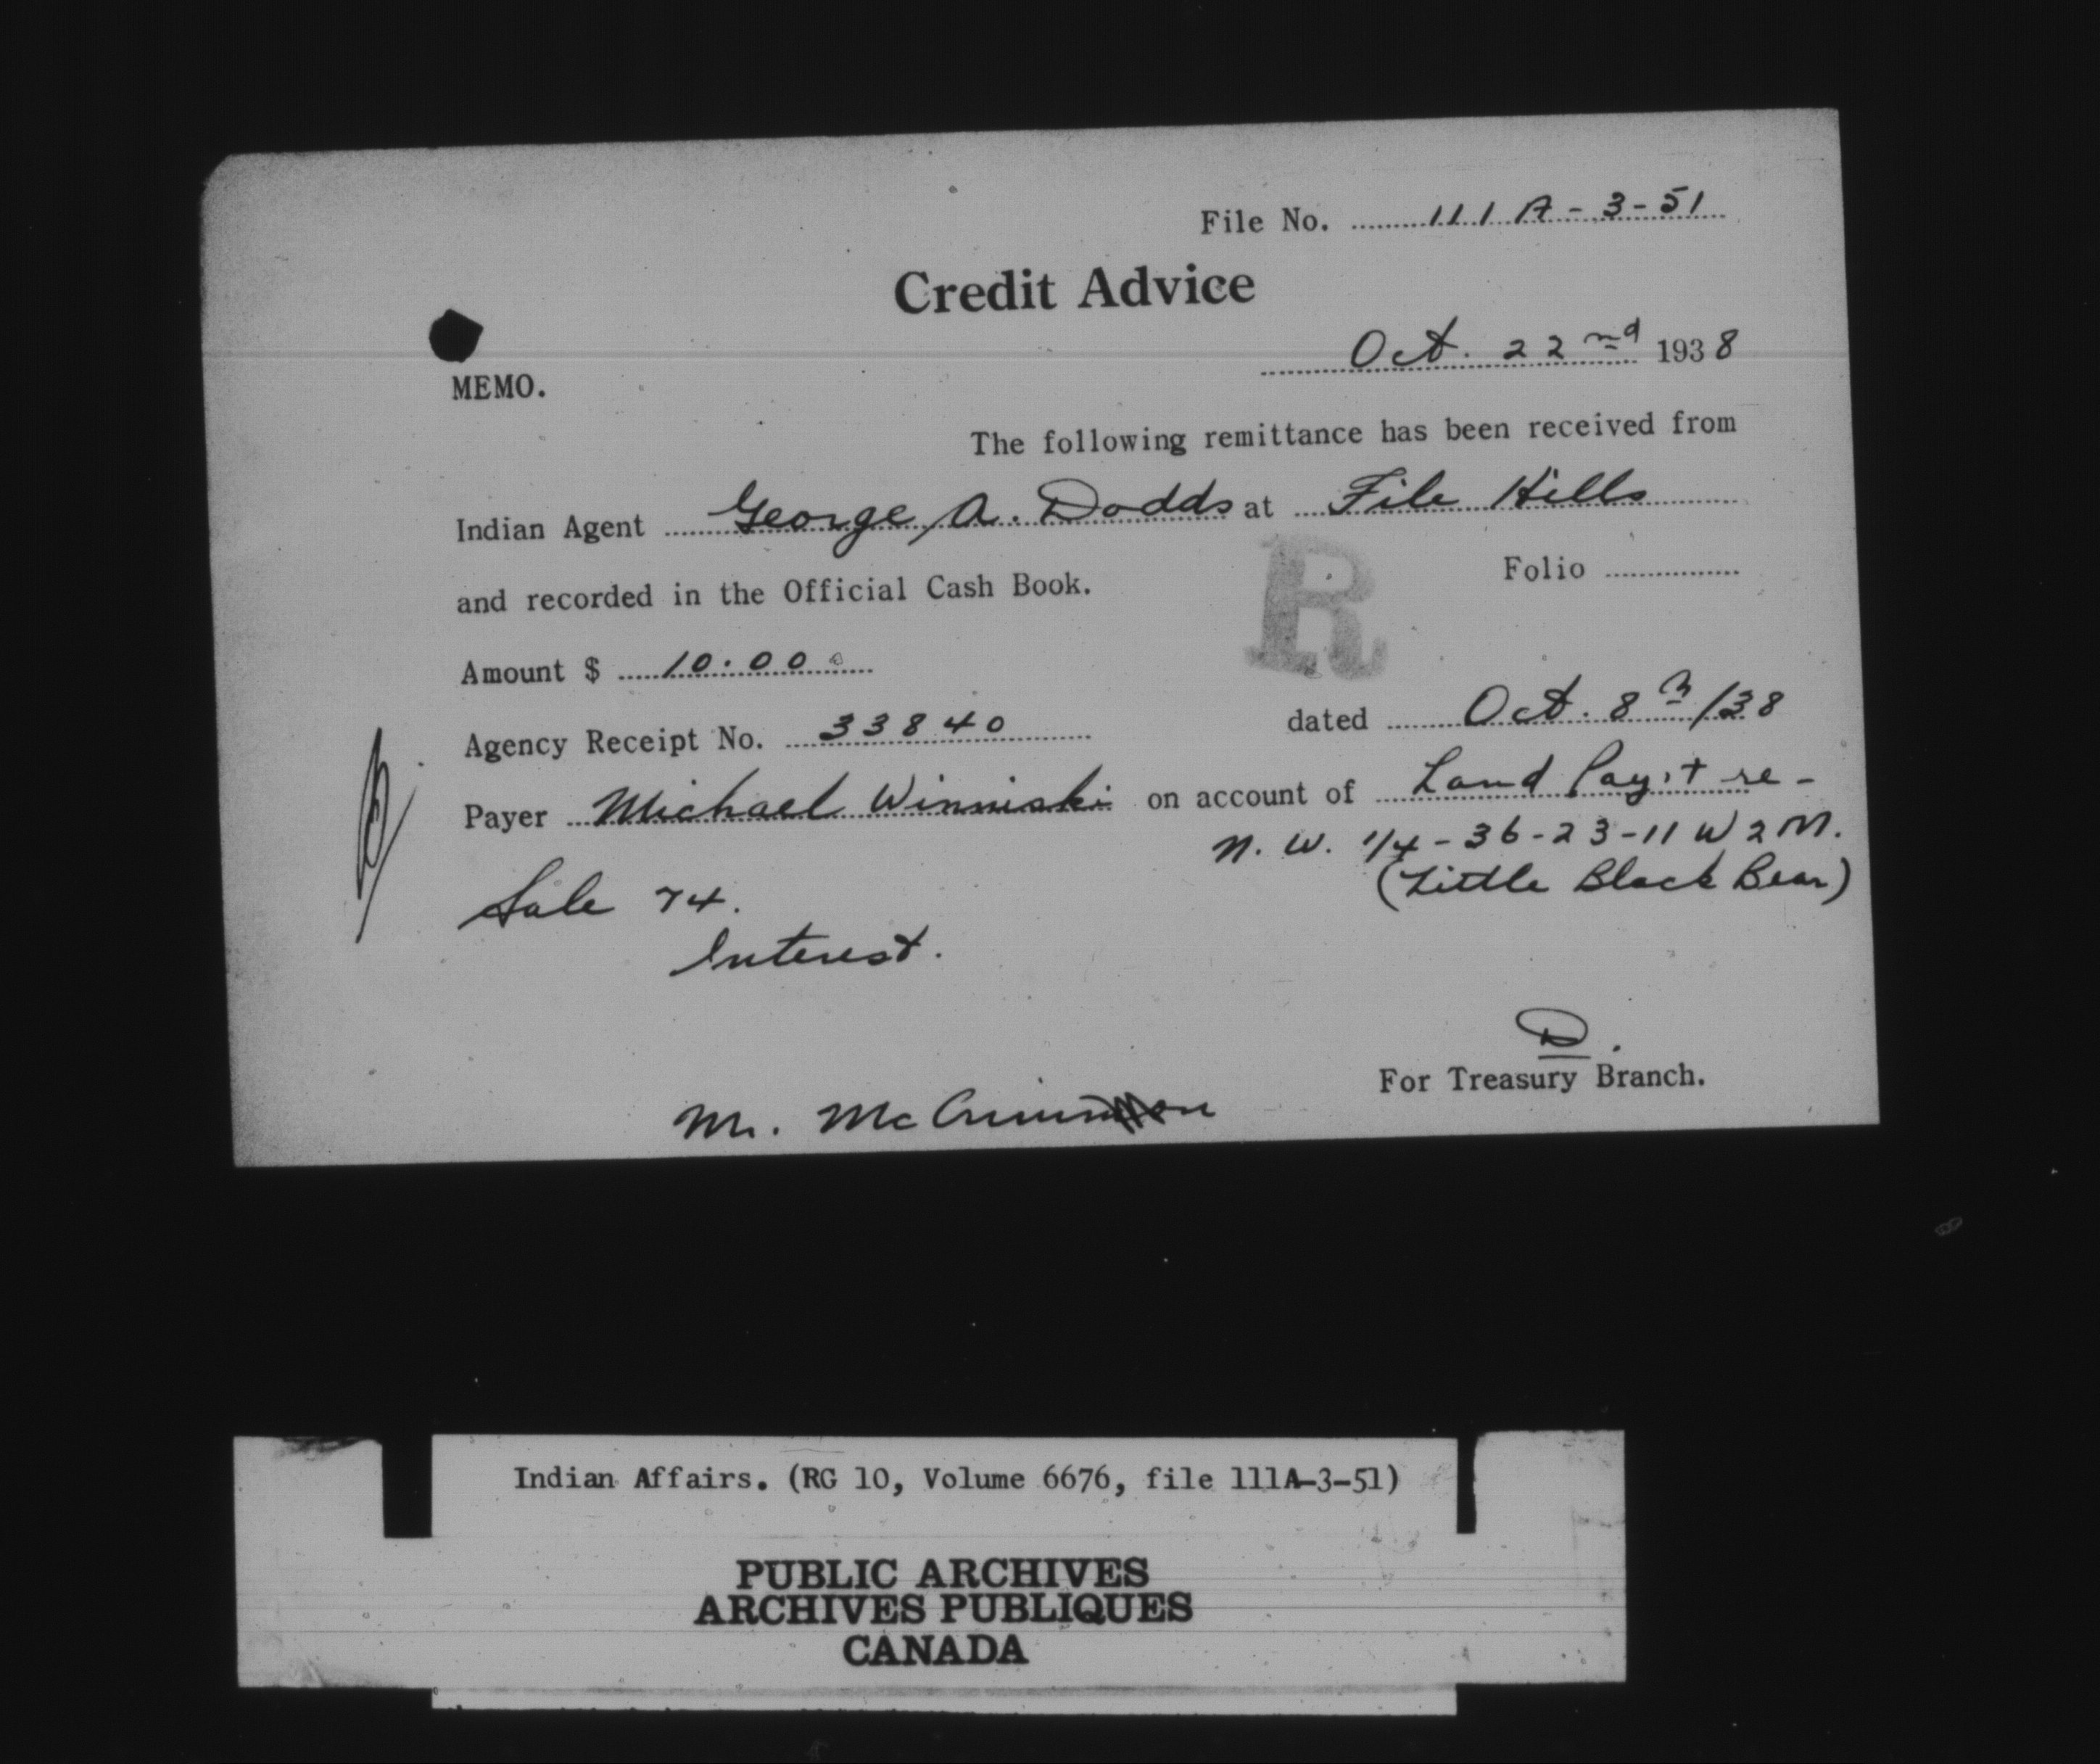 File No. 111A-3-51
Credit Advice
Oct. 22nd 1938
MEMO.
The following remittance has been received from
Indian Agent George A. Dodds at File Hills
and recorded in the Official Cash Book. Folio
R
Amount $ 10.00
Agency Receipt No. 33840 dated Oct. 8th/38
Payer Michael Winniski on account of Land Pay't re-
N.W. 1/4-36-23-11 W2M.
(Little Black Bear)
Sale 74.
Interest.
D.
For Treasury Branch.
Mr. McCrimmon
Indian Affairs. (RG 10, Volume 6676, file 111A-3-51)
PUBLIC ARCHIVES
ARCHIVES PUBLIQUES
CANADA